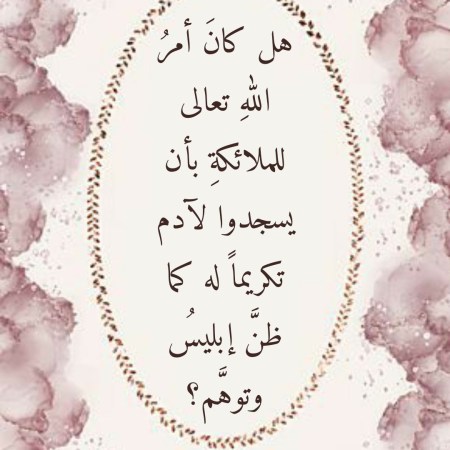 هل كانَ أمرُ
اللهِ تعالى
للملائكةِ بأن
يسجدوا لآدم
تكريماً له كما
ظنَّ إبليسُ
وتوهَّم؟